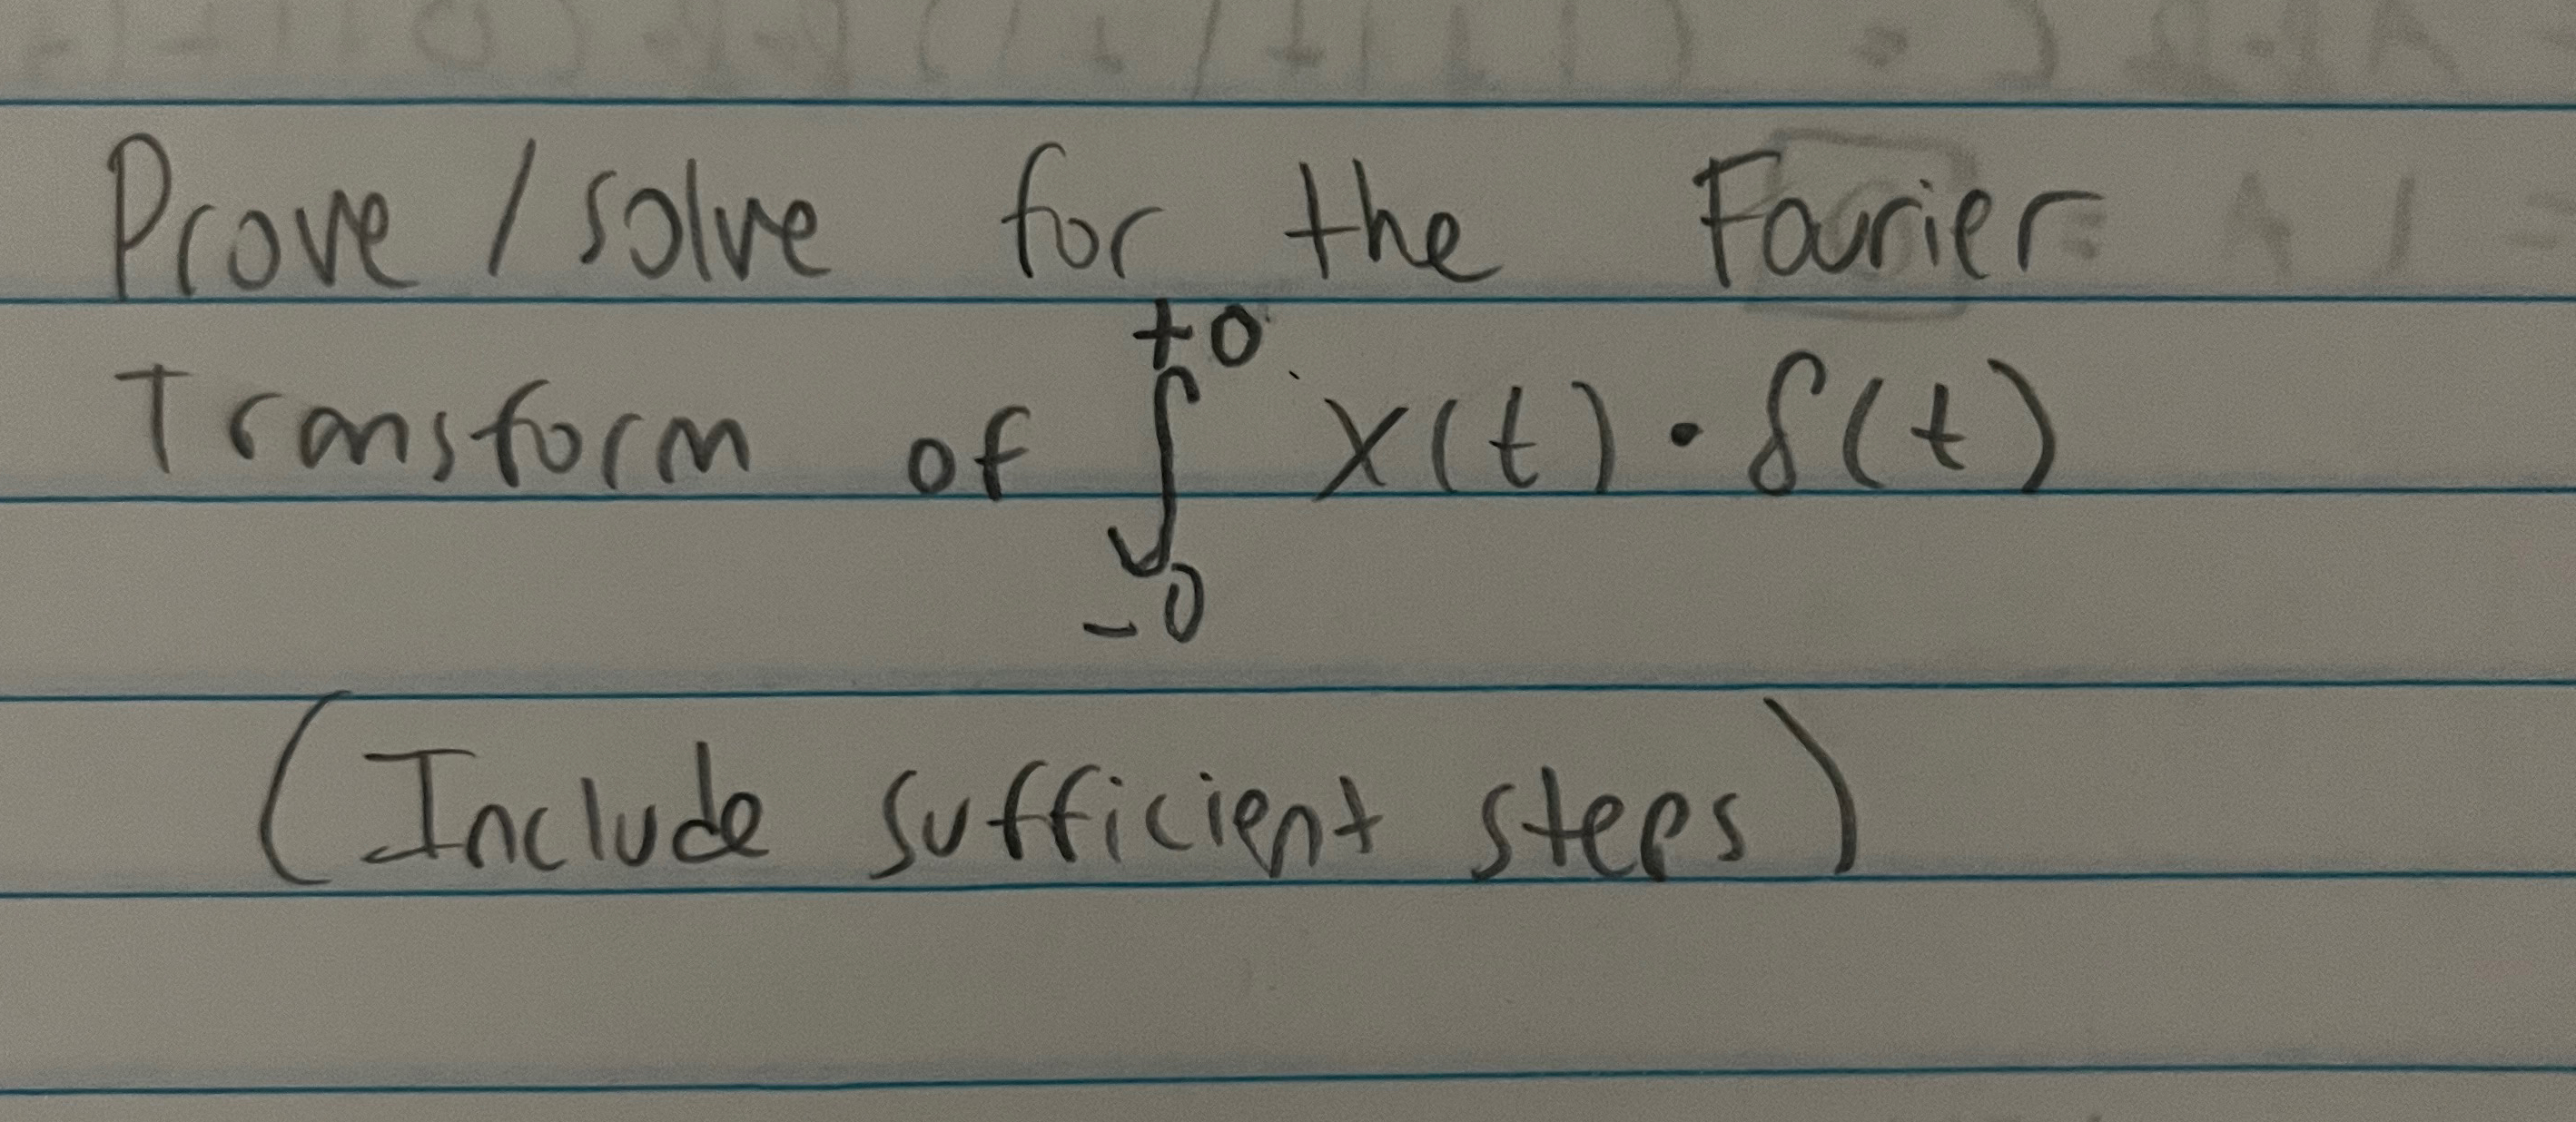 Prove / solve for the Fourier
Transform of ∫₋₀⁺⁰ x(t) · δ(t)
(Include sufficient steps)